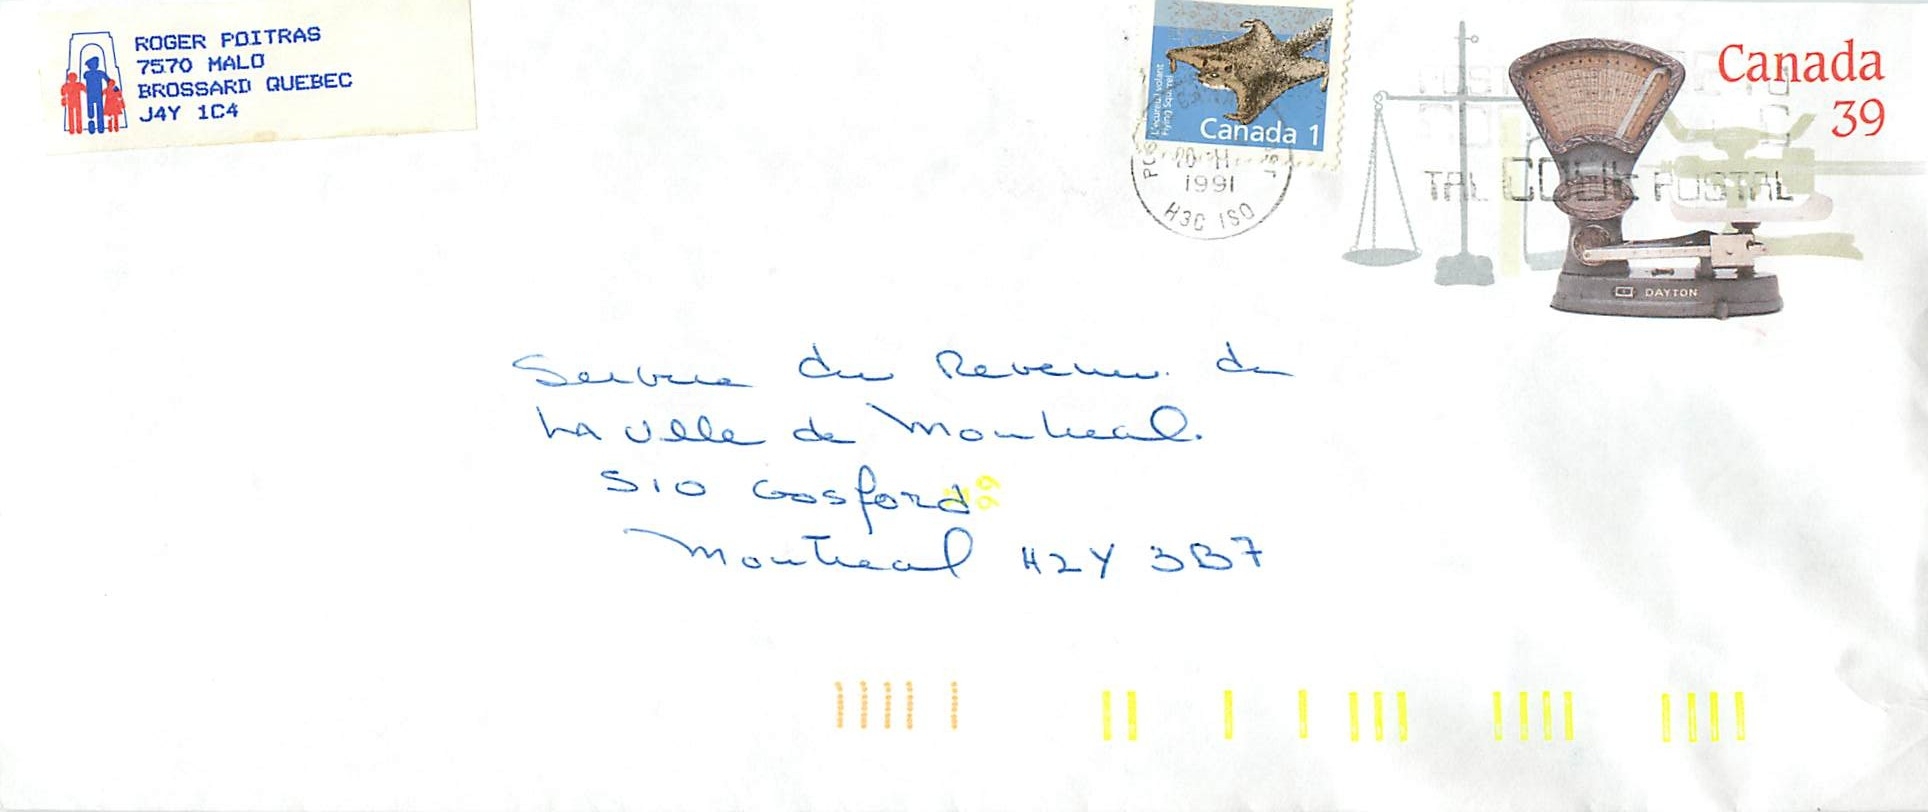 ROGER POITRAS
7570 MALO
BROSSARD QUEBEC
J4Y 1C4
L'écureuil volant
Flying Squirrel
Canada 1
1991
H3C 1S0
Canada
39
POSTAL
DAYTON
Service du Revenu de
La ville de Montreal.
510 Gosford
Montreal H2Y 3B7